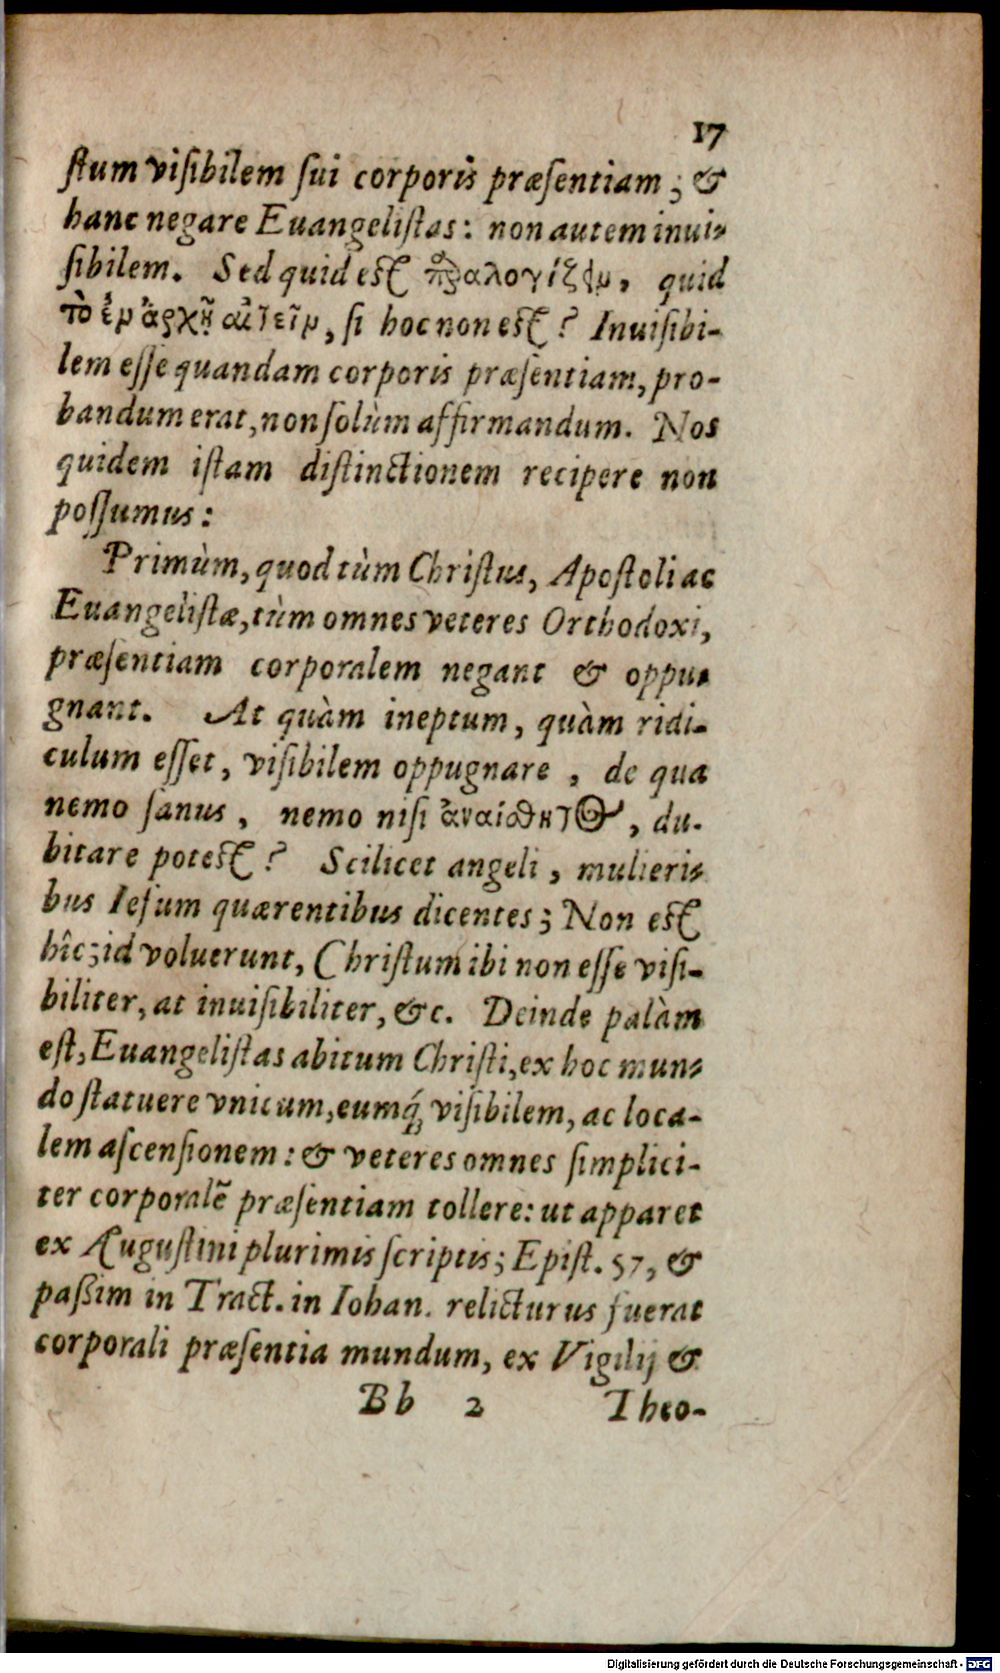 17
ſtum viſibilem ſui corporis præſentiam; &
hanc negare Euangeliſtas: non autem inui-
ſibilem. Sed quid eſt παραλογίζειν, quid
τὸ ἐν ἀρχῇ αἰτεῖν, ſi hoc non eſt? Inuiſibi-
lem eſſe quandam corporis præſentiam, pro-
bandum erat, non ſolùm affirmandum. Nos
quidem iſtam diſtinctionem recipere non
poſſumus:
Primùm, quod tùm Chriſtus, Apoſtoli ac
Euangeliſtæ, tùm omnes veteres Orthodoxi,
præſentiam corporalem negant & oppu-
gnant. At quàm ineptum, quàm ridi-
culum eſſet, viſibilem oppugnare, de qua
nemo ſanus, nemo niſi ἀναίσθητος, du-
bitare poteſt? Scilicet angeli, mulieri-
bus Ieſum quærentibus dicentes; Non eſt
hîc; id voluerunt, Chriſtum ibi non eſſe viſi-
biliter, at inuiſibiliter, &c. Deinde palàm
eſt, Euangeliſtas abitum Chriſti, ex hoc mun-
do ſtatuere vnicum, eumq́; viſibilem, ac loca-
lem aſcenſionem: & veteres omnes ſimplici-
ter corporalẽ præſentiam tollere: ut apparet
ex Auguſtini plurimis ſcriptis; Epiſt. 57, &
paßim in Tract. in Iohan. relicturus fuerat
corporali præſentia mundum, ex Vigilij &
Bb 2 Theo-
Digitalisierung gefördert durch die Deutsche Forschungsgemeinschaft - DFG